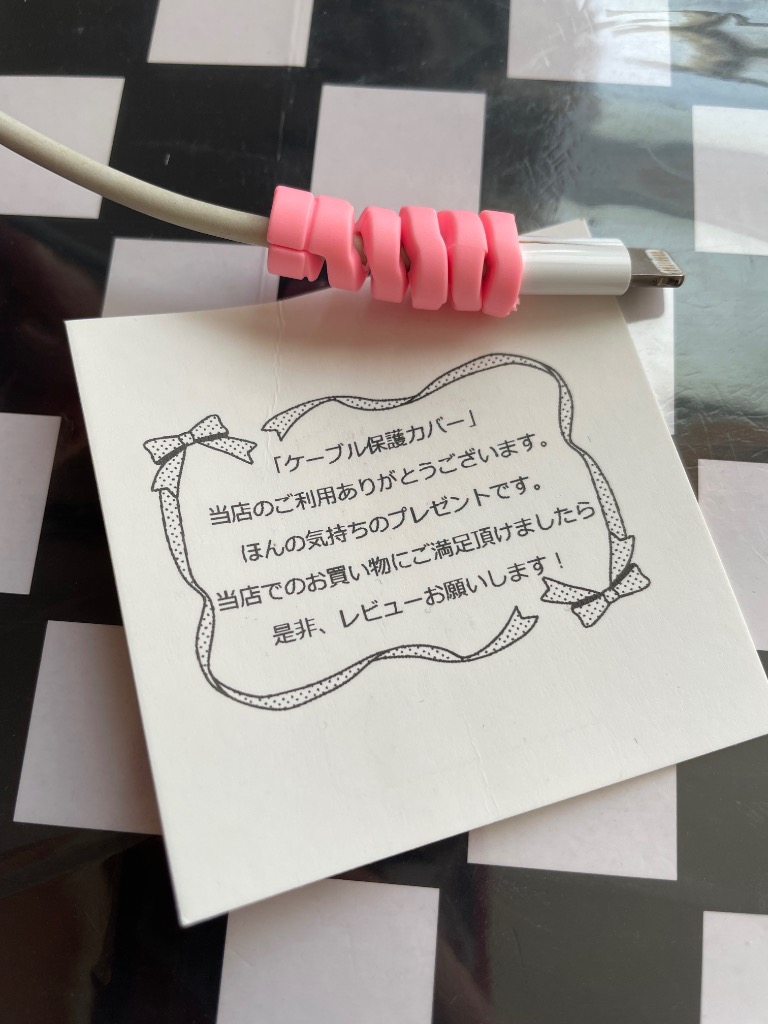 「ケーブル保護カバー」
当店のご利用ありがとうございます。
ほんの気持ちのプレゼントです。
当店でのお買い物にご満足頂けましたら
是非、レビューお願いします！